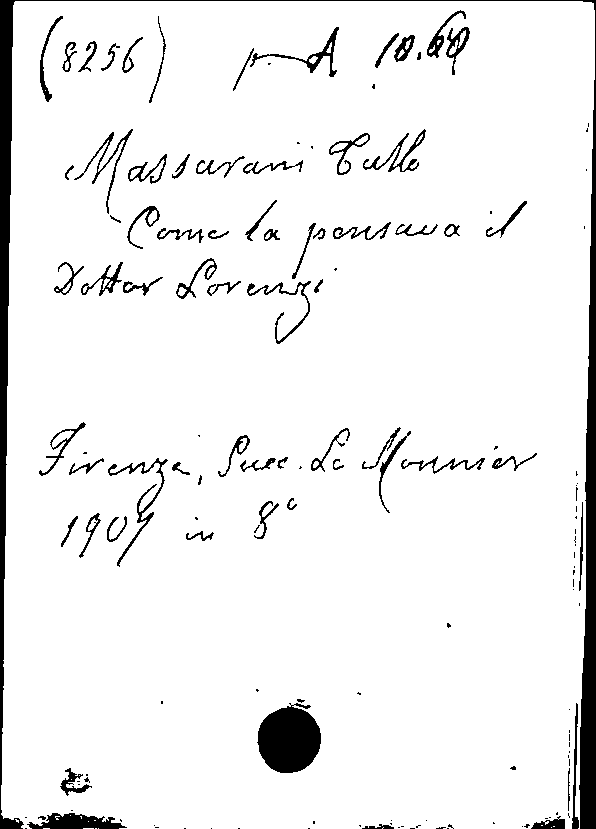 (8256) p. A 10.
Massarani Tullo
Come la pensava il
Dottor Lorenzi
Firenze, Succ. Le Monnier
1907 in 8°